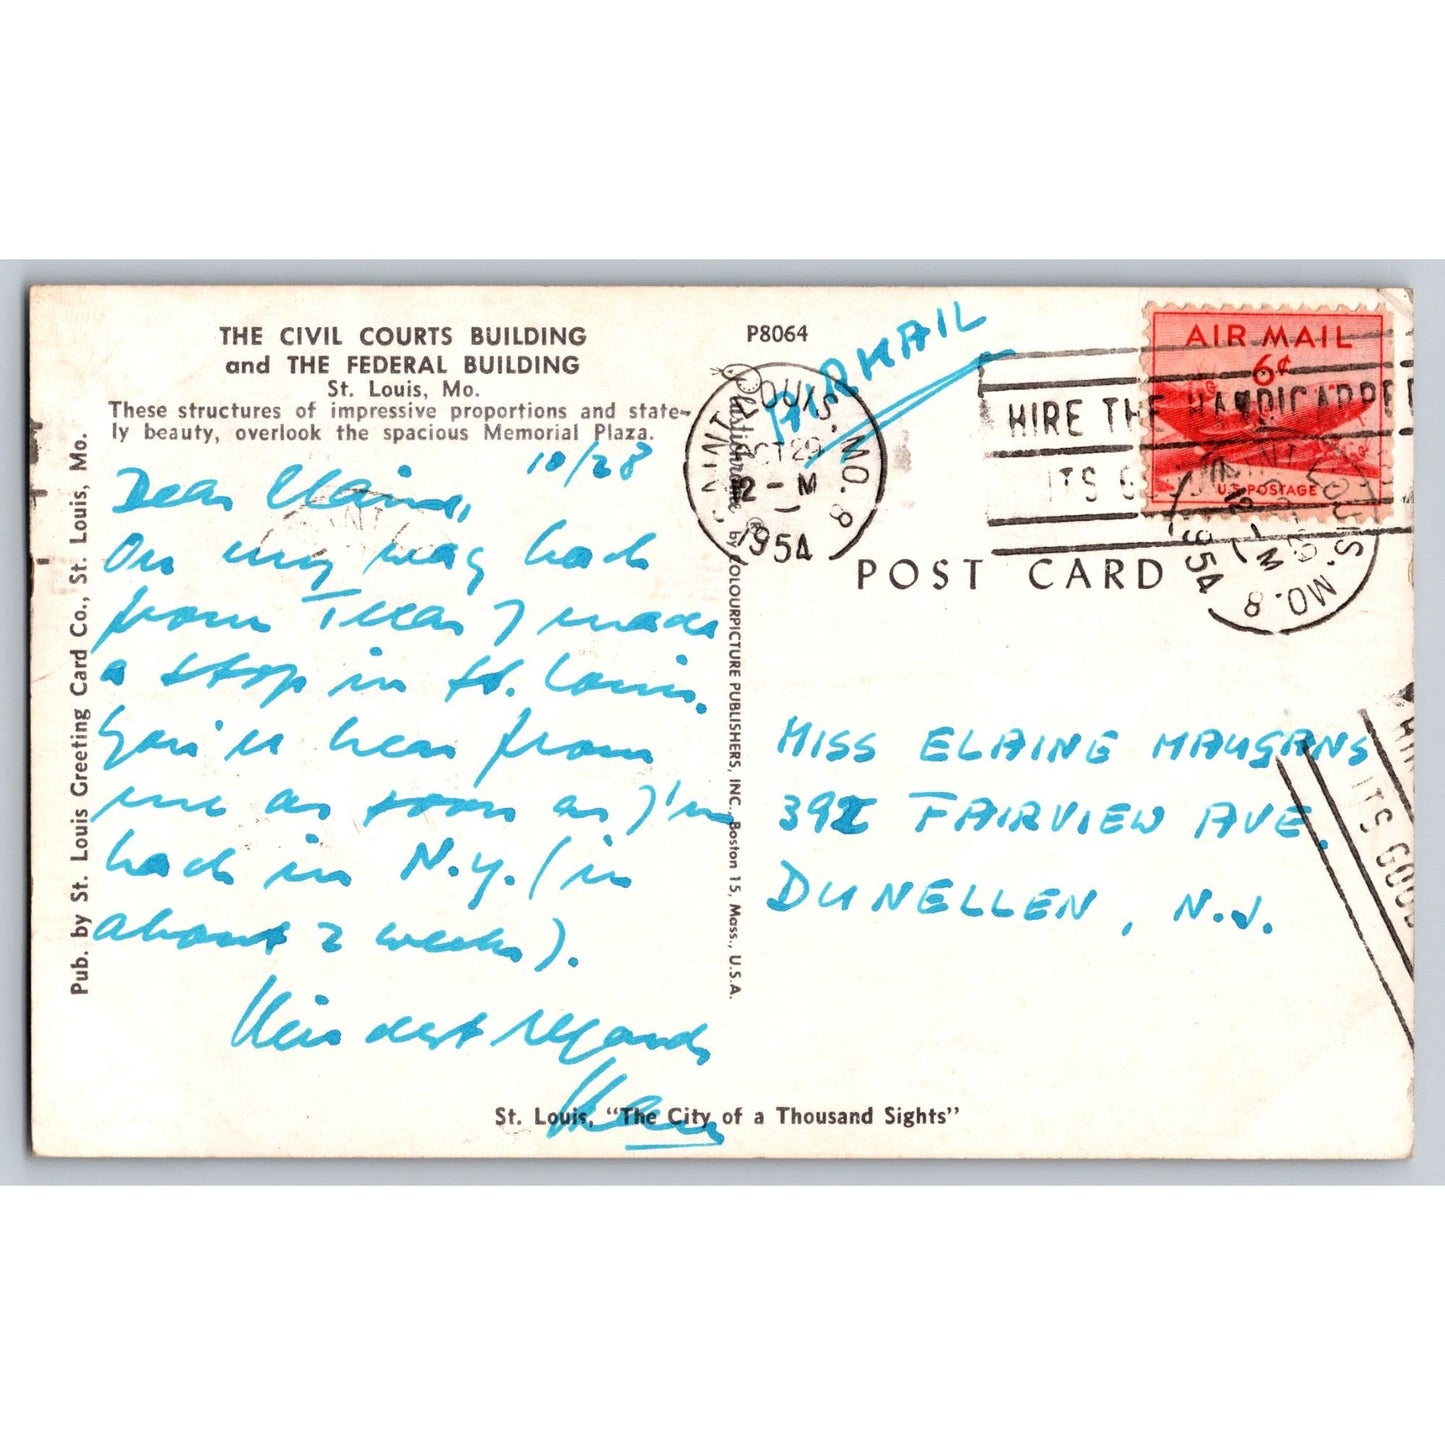 THE CIVIL COURTS BUILDING
and THE FEDERAL BUILDING
St. Louis, Mo.
These structures of impressive proportions and state-
ly beauty, overlook the spacious Memorial Plaza.
10/28
Dear Elaine,
On my way back
from Texas I made
a stop in St. Louis.
You'll hear from
me as soon as I'm
back in N.Y. (in
about 2 weeks).
Kindest regards
St. Louis, "The City of a Thousand Sights"
Pub. by St. Louis Greeting Card Co., St. Louis, Mo.
Plastichrome ® by COLOURPICTURE PUBLISHERS, INC., Boston 15, Mass., U.S.A.
P8064
AIRMAIL
LOUIS, MO. 8
OCT 29
12 - M
1954
HIRE THE HANDICAPPED
ITS G
AIR MAIL
6¢
U.S. POSTAGE
LOUIS, MO. 8
12 - M
1954
POST CARD
MISS ELAINE MAUGANS
392 FAIRVIEW AVE.
DUNELLEN, N.J.
ITS GOOD